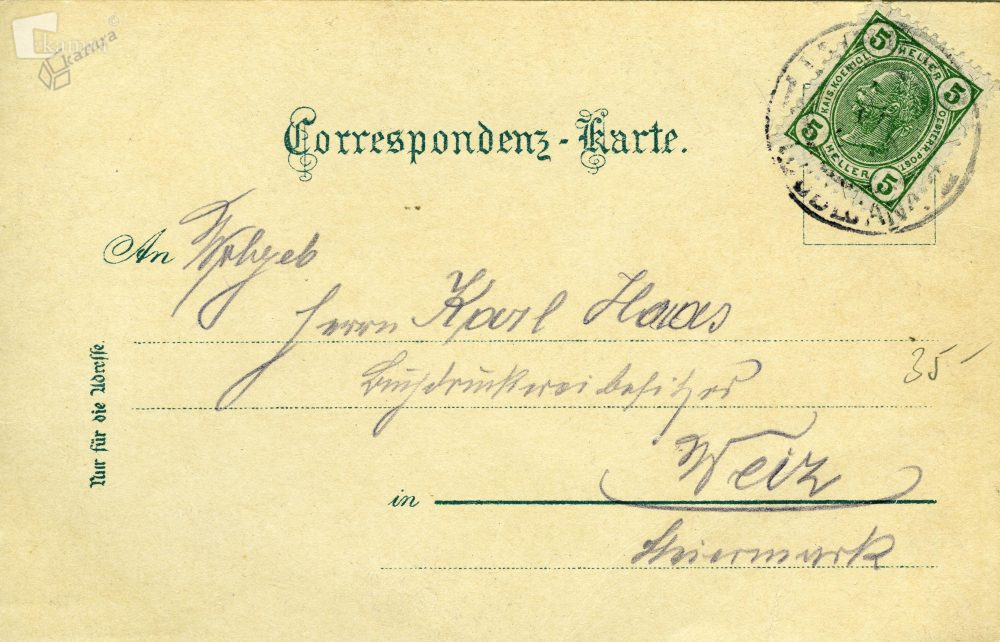 kamra
kamra
Correspondenz-Karte.
5 HELLER 5
KAIS. KOENIGL. OESTERR. POST.
5 HELLER 5
An Wohlgeb
Herrn Karl Haas
Buchdruckereibesitzer
35
Weiz
in
Steiermark
Nur für die Adresse.